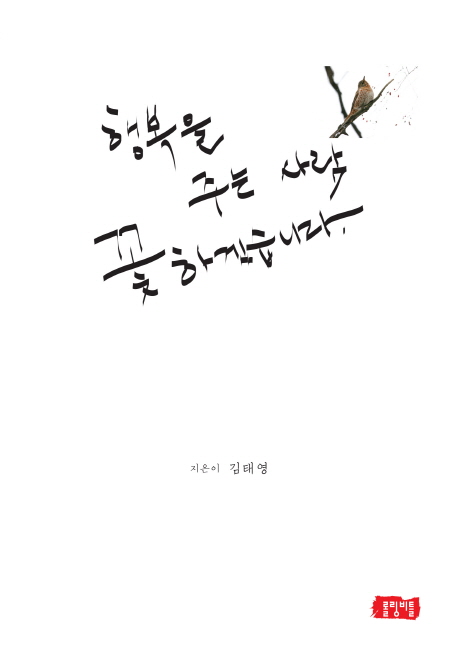 행복을
주는 사람,
꽃 하겠습니다.
지은이 김태영
롤링비틀